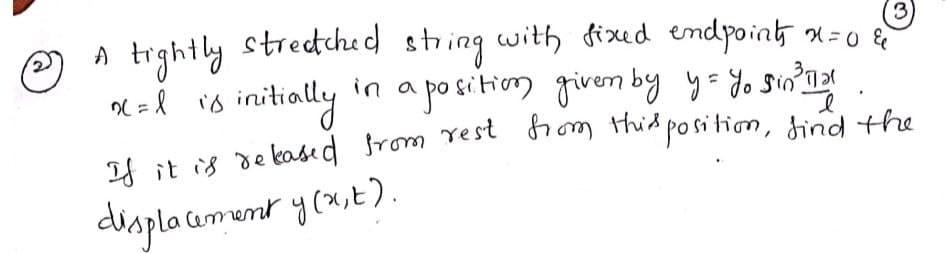 3
② A tightly stretched string with fixed endpoints x=0 &
x=l is initially in a position given by y = y₀ sin³ πx/l .
If it is released from rest from this position, find the
displacement y(x,t).